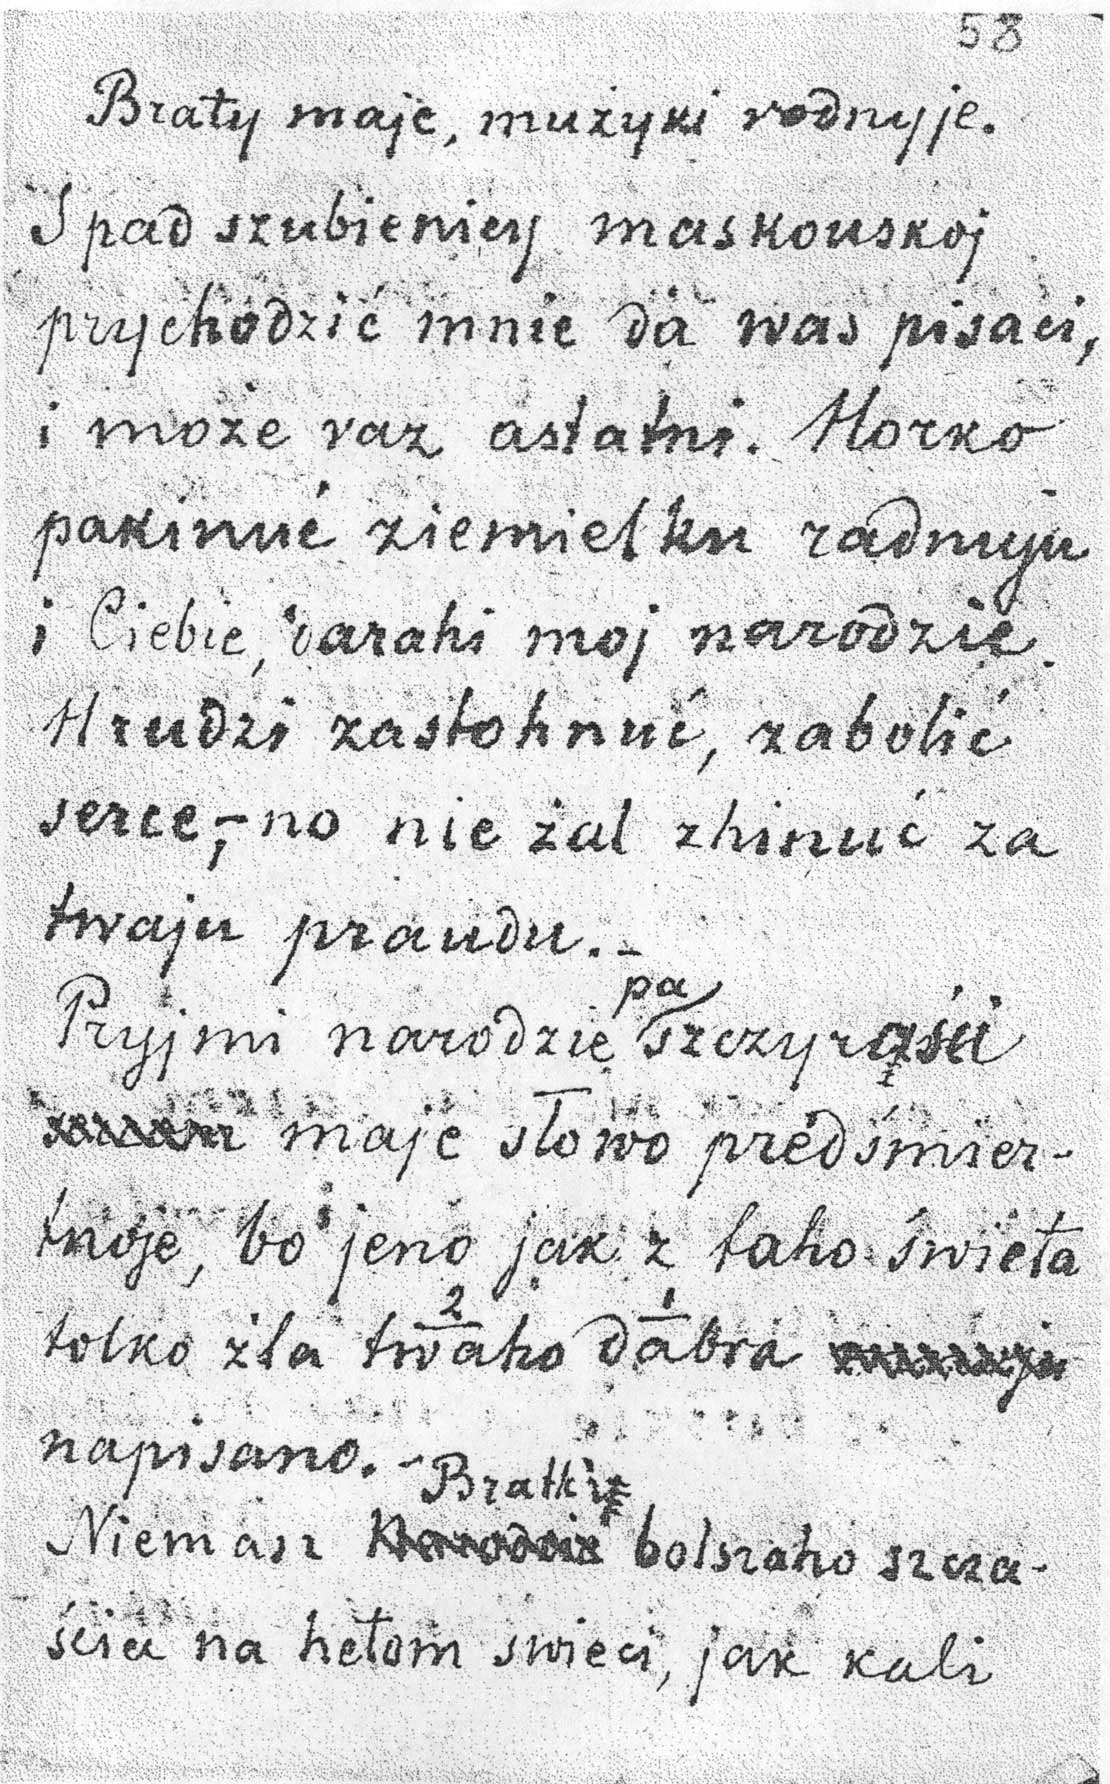 58
Braty maje, mużyki rodnyje.
S pad szubienicy maskouskoj
prychodzić mnie da was pisaci,
i może raz astatni. Horko
pakinuć ziemielku radnuju
i Ciebie, darahi moj narodzie.
Hrudzi zastohnuć, zabolić
serce,- no nie żal zhinuć za
twaju praudu.-
pa
Pryjmi narodzie szczyrości
maje słowo prédśmier-
tnoje, bo jeno jak z taho świeta
2 1
tolko żła twaho dabra
napisano.-
Bratkie
Niemasz bolszaho szcza-
ścia na hetom swieci, jak kali